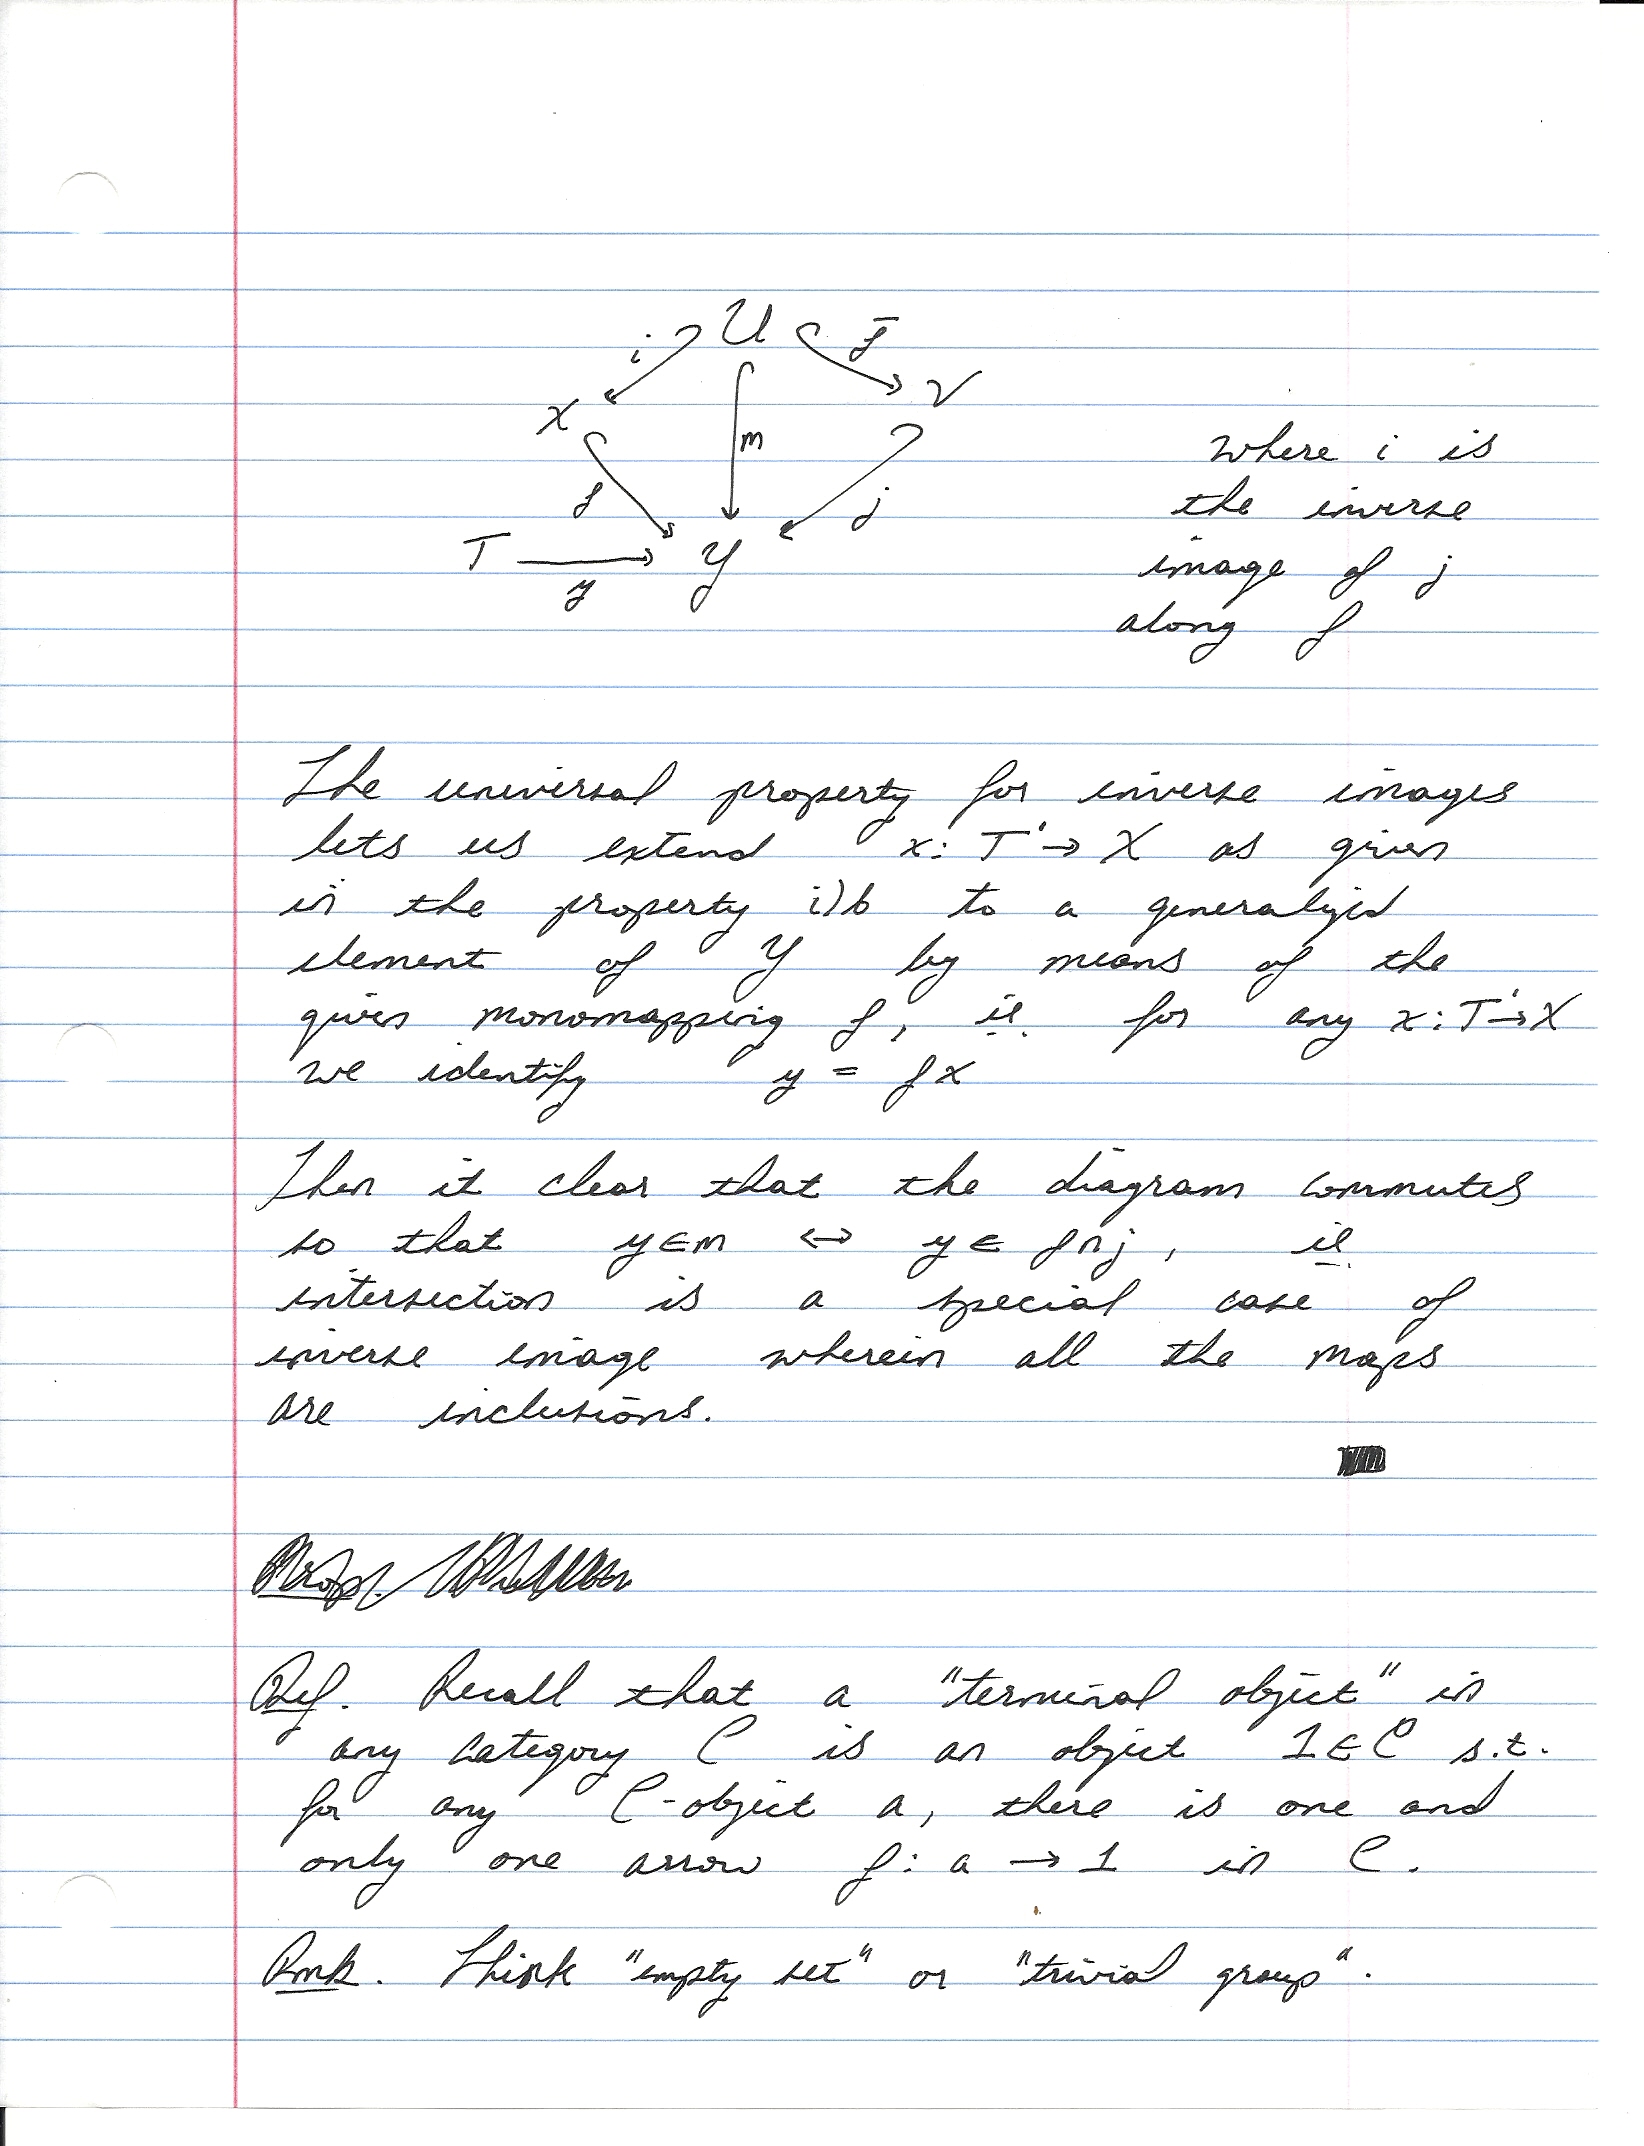 U
i
f̄
X
V
m
f
j
T
Y
y
where i is
the inverse
image of j
along f
The universal property for inverse images
lets us extend x: T' → X as given
in the property i)b to a generalized
element of Y by means of the
given monomapping f, ie. for any x: T' → X
we identify y = fx
Then it clear that the diagram commutes
so that y∈m ↔ y∈ f∩j, ie.
intersection is a special case of
inverse image wherein all the maps
are inclusions.
Def. Recall that a "terminal object" in
any category C is an object 1∈C s.t.
for any C-object a, there is one and
only one arrow f: a → 1 in C.
Rmk. Think "empty set" or "trivial group".